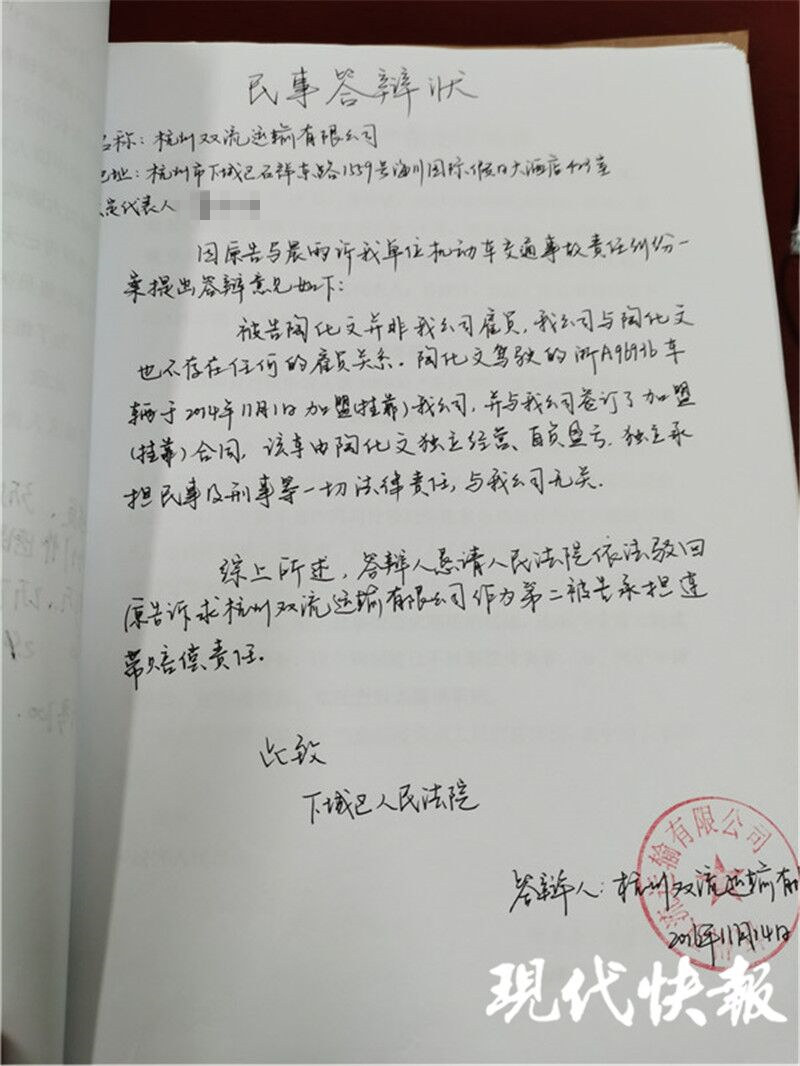 民事答辩状
名称：杭州双流运输有限公司
地址：杭州市下城区石祥东路1559号海川国际假日大酒店423室
定代表人
因原告与晨雨诉我单位机动车交通事故责任纠纷一
案提出答辩意见如下：
被告陶化文并非我公司雇员，我公司与陶化文
也不存在任何的雇员关系。陶化文驾驶的浙A9693b车
辆于2014年11月1日加盟(挂靠)我公司，并与我公司签订了加盟
(挂靠)合同，该车由陶化文独立经营、自负盈亏，独立承
担民事及刑事等一切法律责任，与我公司无关。
综上所述，答辩人恳请人民法院依法驳回
原告诉求杭州双流运输有限公司作为第二被告承担连
带赔偿责任。
此致
下城区人民法院
答辩人：杭州双流运输有
2016年11月14日
输有限公司
现代快報